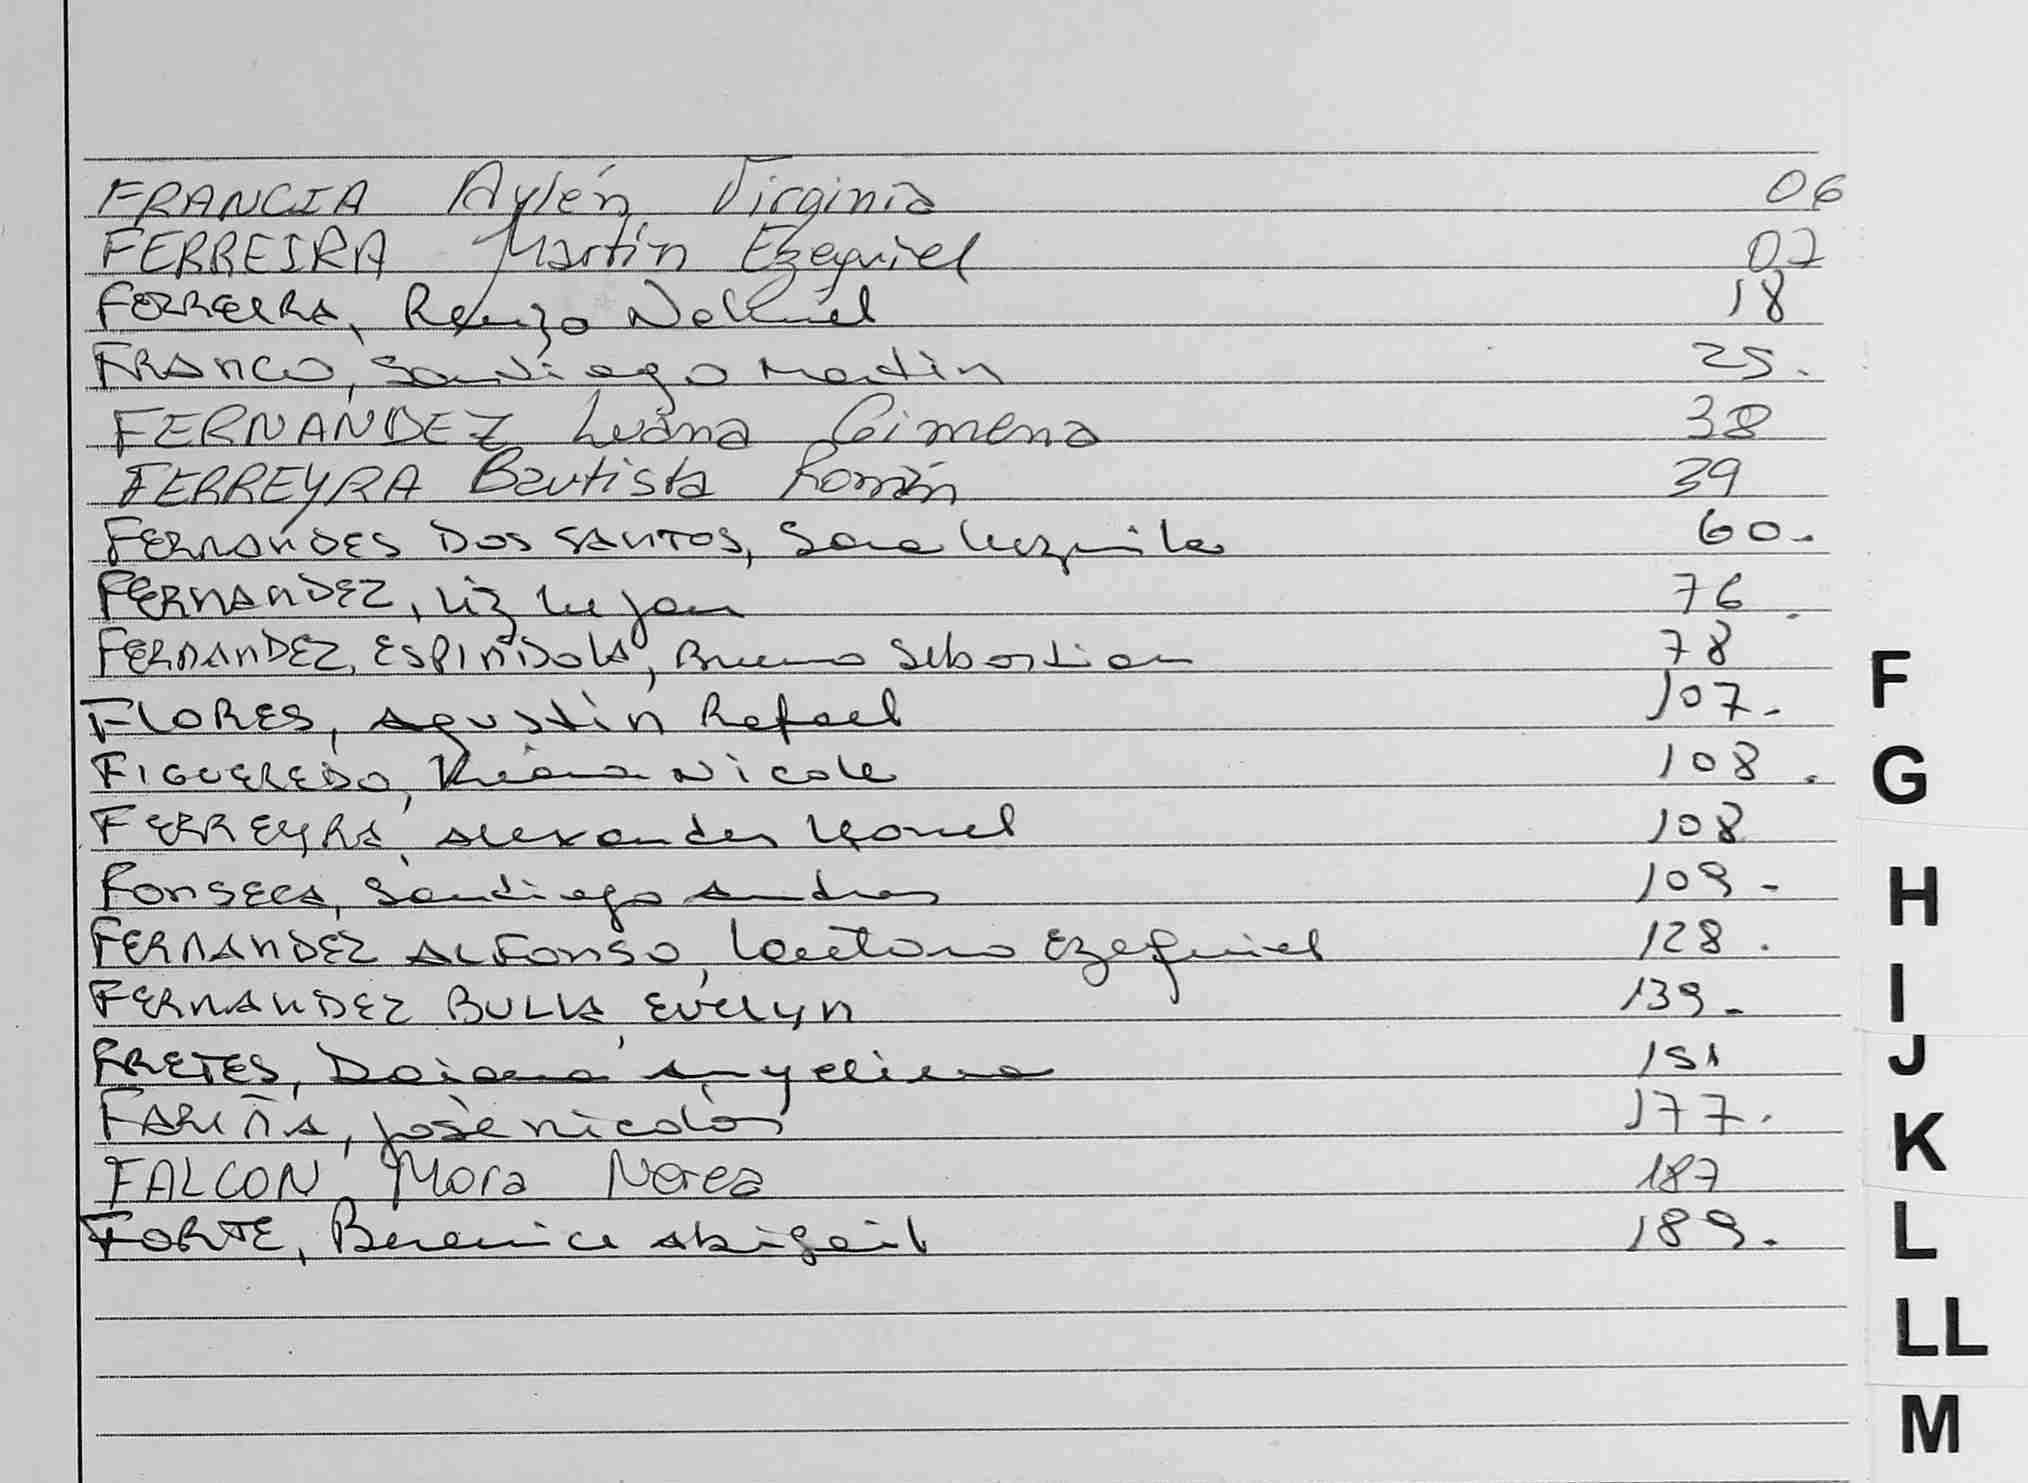 FRANCIA Aylén Virginia 06
FERREIRA Martín Ezequiel 07
FERREIRA, Renzo Nathuel 18
FRANCO, Santiago Martin 25.
FERNANDEZ Luana Gimena 38
FERREYRA Bautista Román 39
FERNANDES DOS SANTOS, Sara Luzmila 60.
FERNANDEZ, Liz Lujan 76.
FERNANDEZ, ESPINDOLA, Bruno Sebastian 78
FLORES, Agustin Rafael 107.-
FIGUEREDO, Nicole 108.
FERREYRA, Alexander Leonel 108
FONSECA, Santiago Andres 109-
FERNANDEZ ALFONSO, Lautaro Ezequiel 128.
FERNANDEZ BULLA, Evelyn 139.-
FRETES, Daiana Angelina 151
FARIÑA, José nicolás 177.
FALCON, Mora Nerea 187
FORTE, Berenice Abigail 189.
F
G
H
I
J
K
L
LL
M